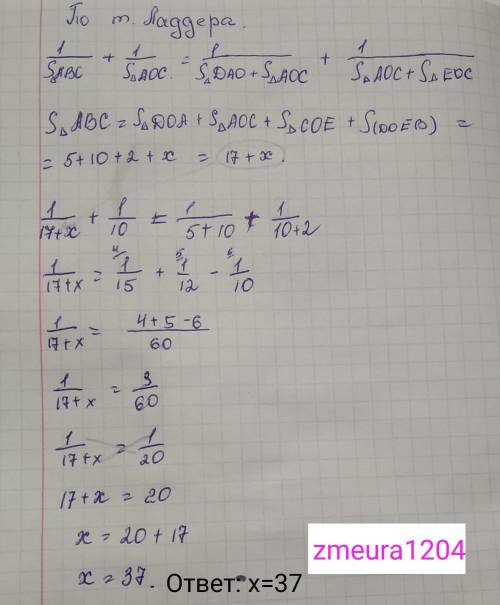 По т. Ладдера.
1/S△ABC + 1/S△AOC = 1/(S△DAO + S△AOC) + 1/(S△AOC + S△EOC)
S△ABC = S△DOA + S△AOC + S△COE + S(DOEB) =
= 5 + 10 + 2 + x = 17 + x.
1/(17+x) + 1/10 = 1/(5+10) + 1/(10+2)
1/(17+x) = 4/ 1/15 + 5/ 1/12 - 6/ 1/10
1/(17+x) = (4+5-6)/60
1/(17+x) = 3/60
1/(17+x) = 1/20
17+x = 20
x = 20 + 17
x = 37. Ответ: x=37
zmeura1204